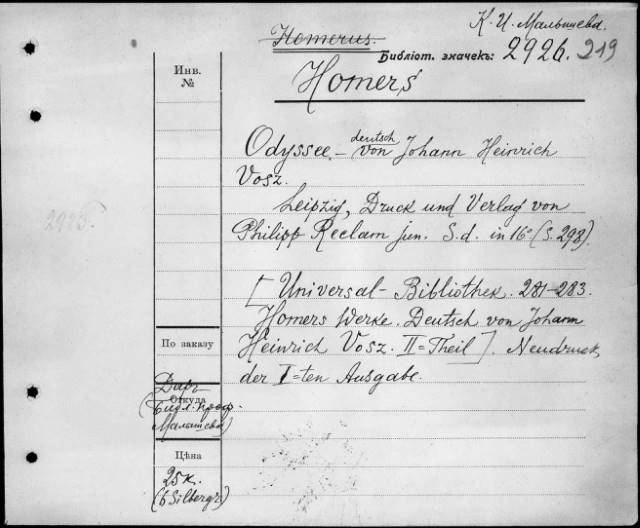 К. И. Малышева.
Homerus.
Библіот. значекъ: 2926. 219
Инв. №
Homers
Odyssee. – deutsch von Johann Heinrich
Vosz.
Leipzig, Druck und Verlag von
Philipp Reclam jun. S.d. in 16° (S. 298).
2925.
[Universal-Bibliothek. 281–283.
Homers Werke. Deutsch von Johann
Heinrich Vosz. II=Theil]. Neudruck
der I=ten Ausgabe.
По заказу
Даръ
Откуда
(Библ. проф.
Малышева)
Цѣна
25к.
(6 Silbergr.)